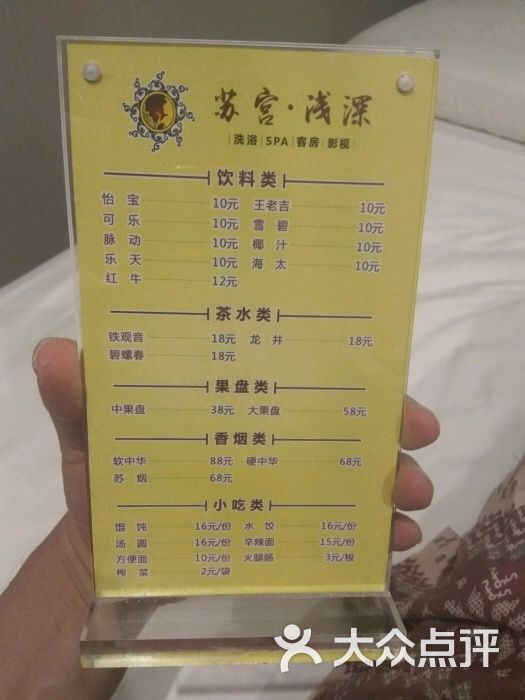 苏宫·浅深
洗浴|SPA|客房|影视
饮料类
怡宝 10元 王老吉 10元
可乐 10元 雪碧 10元
脉动 10元 椰汁 10元
乐天 10元 海太 10元
红牛 12元
茶水类
铁观音 18元 龙井 18元
碧螺春 18元
果盘类
中果盘 38元 大果盘 58元
香烟类
软中华 88元 硬中华 68元
苏烟 68元
小吃类
馄饨 16元/份 水饺 16元/份
汤圆 16元/份 辛辣面 15元/份
方便面 10元/份 火腿肠 3元/根
榨菜 2元/袋
大众点评